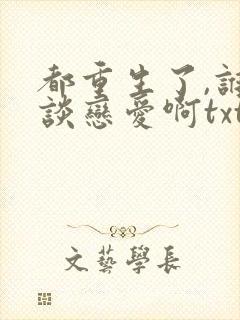 都重生了,誰
談戀愛啊txt
文藝學長